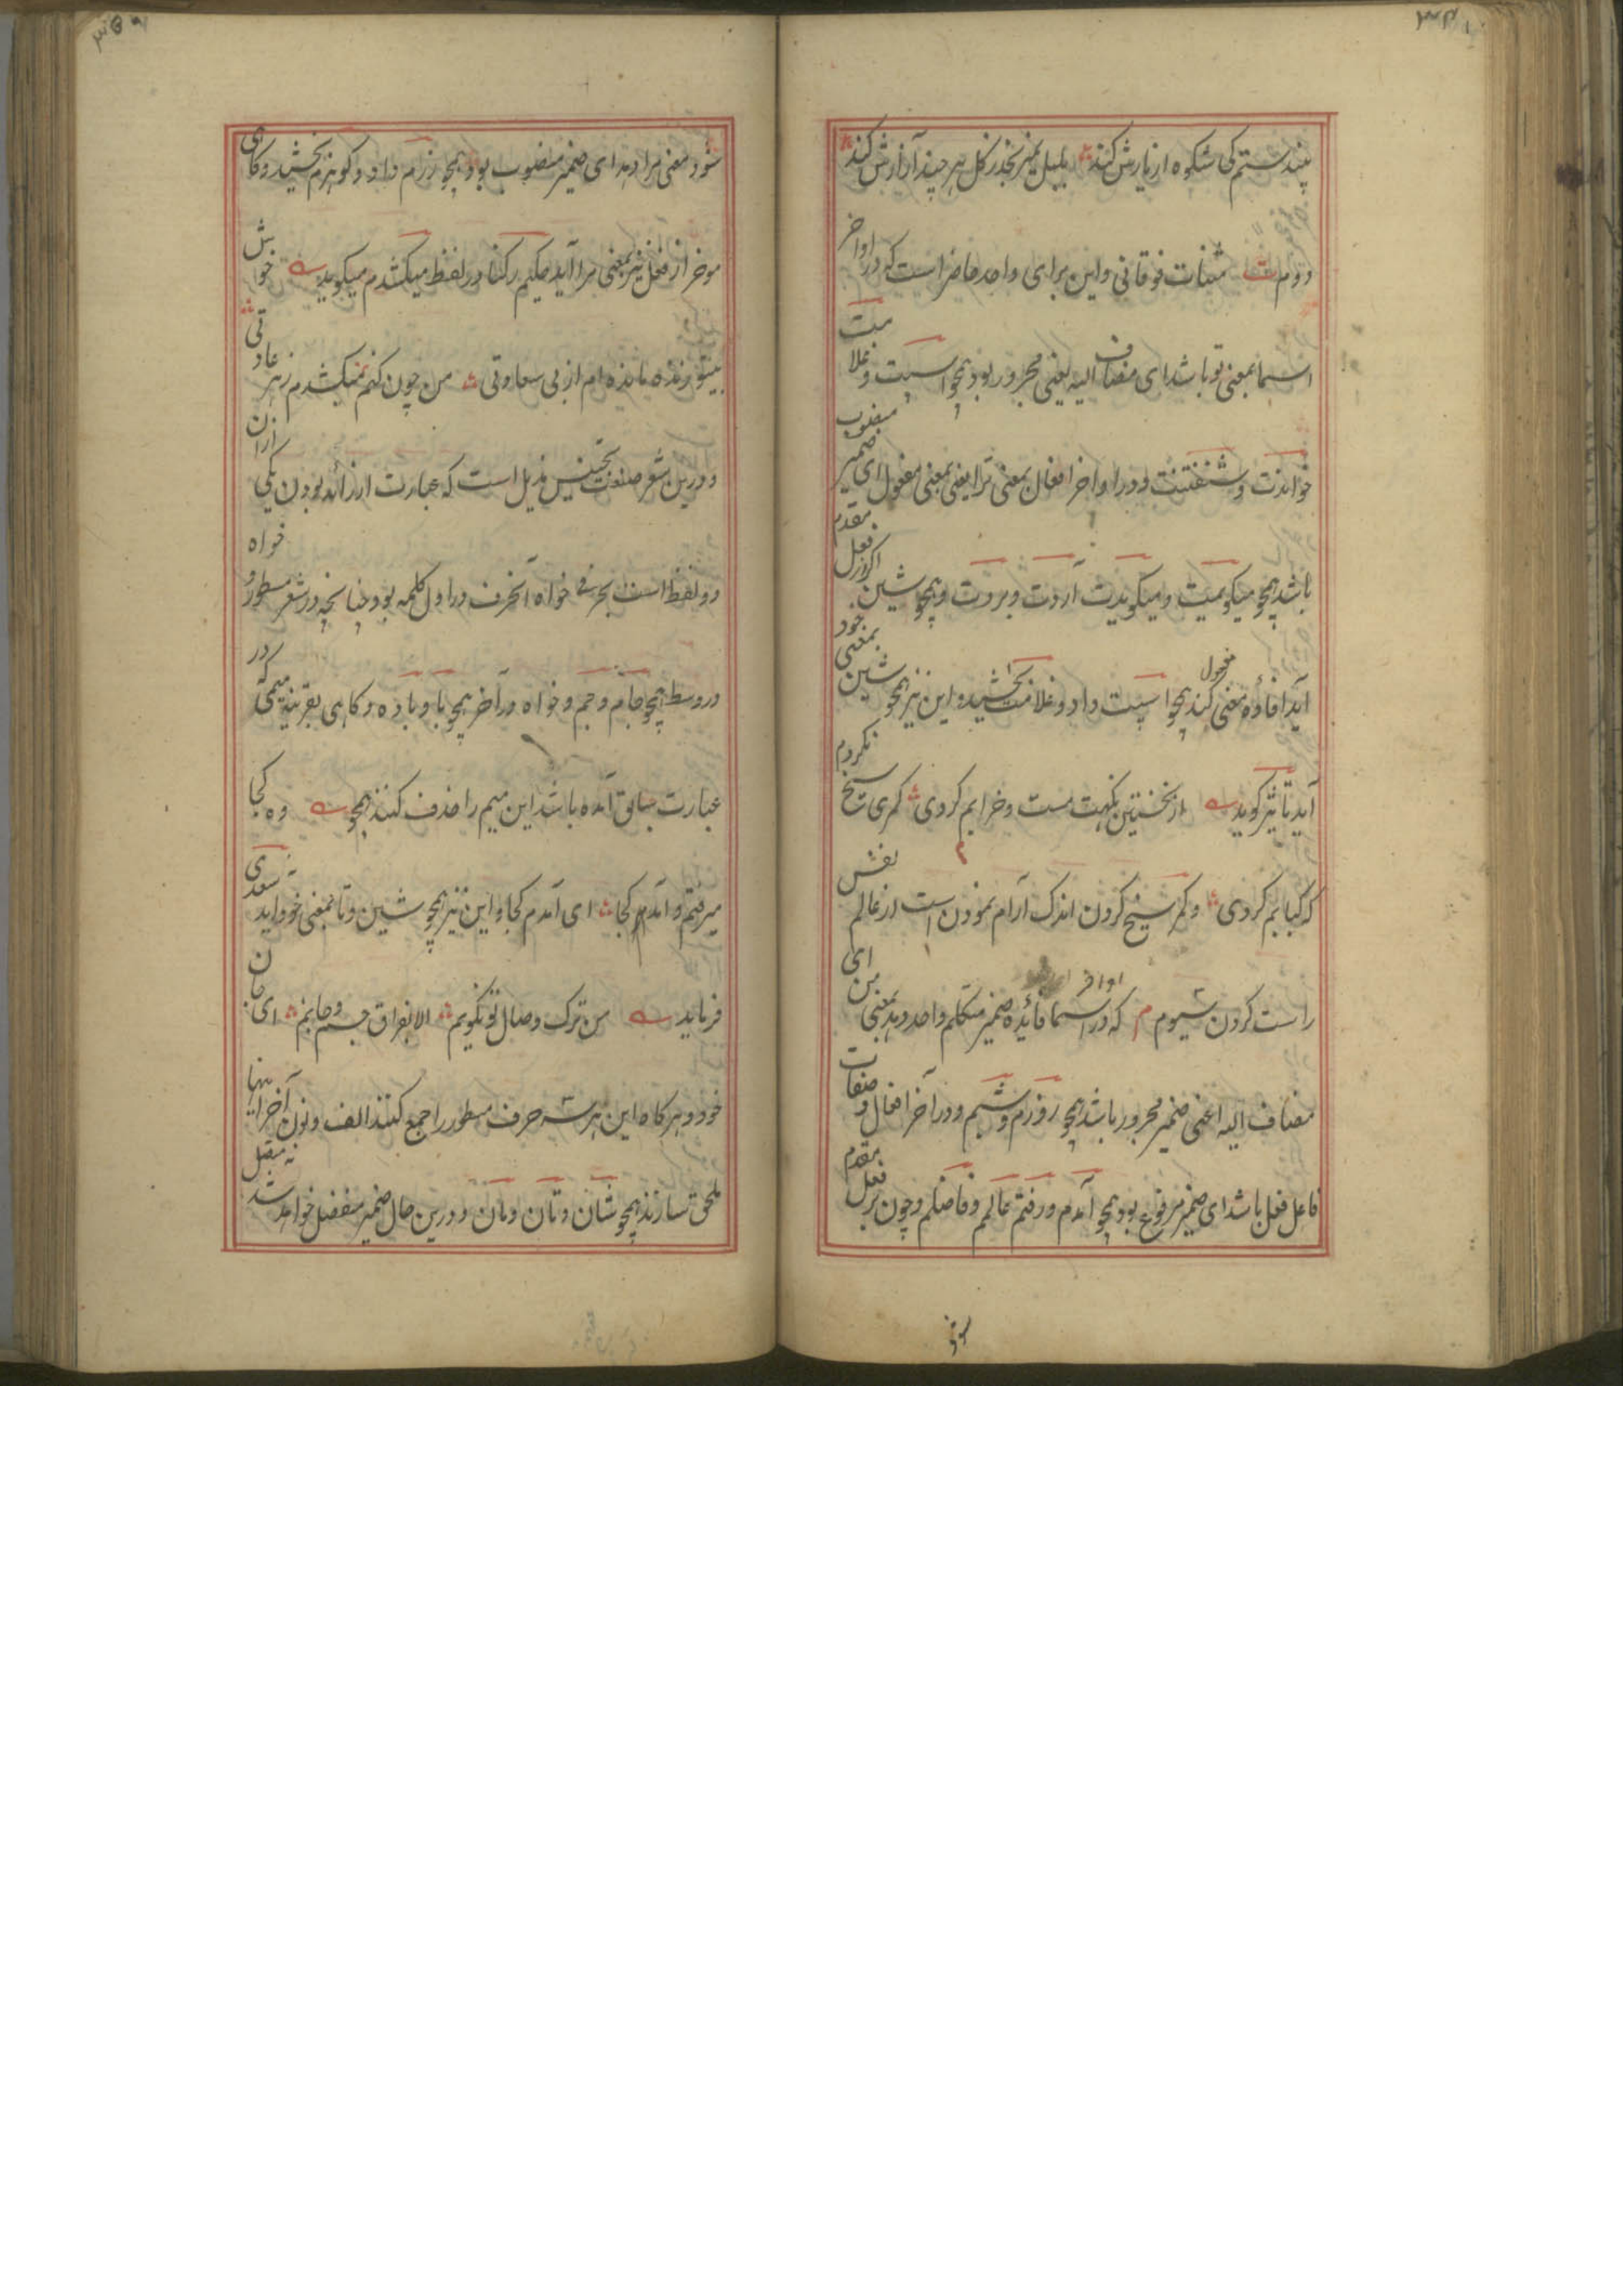 بیند ستم کی شکوه از یارش کند بلبل بمیرد بخدر گل هر چند آزارش کند
دوم ت مثنات فوقانی و این برای واحد حاضر است که در اواخر
اسما بمعنی تو باشد ای مضاف الیه یعنی مجرور بود همچو اسپت و غلامت
خواندت و شنفتنت و در اواخر افعال بمعنی ترا یعنی بمعنی مفعول ای ضمیر منصوب
باشد همچو میگویمت و میگویدت آردت و بردت و همچو شین اگر از فعل مقدم
آید افاده معنی مفعول کند همچو اسپت داد و غلامت بخشید و این نیز همچو شین بمعنی خود
آید تاثیر گوید از نخستین نگهت مست و خرابم کردی گرمی سیخ نکردم
که کبابم کردی و گرم سیخ کردن اندک آرام نمودن است از عالم نفس
راست کردن سیوم م که در اواخر اسما فائده ضمیر متکلم واحد دهد بمعنی من ای
مضاف الیه اعنی ضمیر مجرور باشد همچو روزم و شبم و در آخر افعال و صفات
فاعل فعل باشد ای ضمیر مرفوع بود همچو آمدم و رفتم عالمم و فاضلم و چون بر فعل مقدم
شود معنی مرا دهد ای ضمیر منصوب بود همچو زرم داد و گوهرم بخشید و گاهی
موخر از فعل نیز بمعنی مرا آید حکیم رکنا در لفظ میکشدم میگوید خوابش
بیتو زنده مانده ام از بی سعادتی من چون کنم نمیکشدم زهر عادتی
و درین شعر صنعت تجنیس مذیل است که عبارت از زائد بودن یکی از آن
دو لفظ است بحرفی خواه آنحرف در اول کلمه بود چنانچه در شعر مسطور و خواه
در وسط همچو جام و جم و خواه در آخر همچو با و باده و گاهی بقرینه میمی که در
عبارت سابق آمده باشد این میم را حذف کنند همچو وه کجا
میرفتم و آمدم کجا ای آمدم کجا و این نیز همچو شین و تا بمعنی خود آید سعدی
فرماید من ترک وصال تو نگویم الا بفراق جسم و جانم ای جان
خود و هرگاه این هر سه حرف مسطور را جمع کنند الف و نون آخر اینها
ملحق سازند همچو شان و تان و مان و درین حال ضمیر منفصل خواهد شد نه متصل